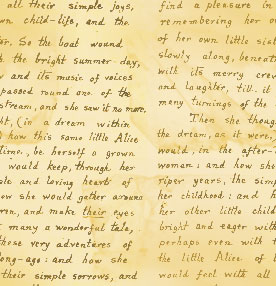 all their simple joys,
own child-life, and the
So the boat wound
the bright summer-day,
and its music of voices
passed round one of the
stream, and she saw it no more.
(in a dream within
how this same little Alice
time, be herself a grown
would keep, through her
and loving heart of
she would gather around
and make their eyes
many a wonderful tale,
these very adventures of
long-ago: and how she
their simple sorrows, and
find a pleasure in
remembering her
of her own little sist
slowly along, beneath
with its merry crew
and laughter, till it
many turnings of the
Then she thoug
the dream, as it were,
would, in the after-
woman: and how she
riper years, the simp
her childhood: and h
her other little child
bright and eager with
perhaps even with t
the little Alice of l
would feel with all